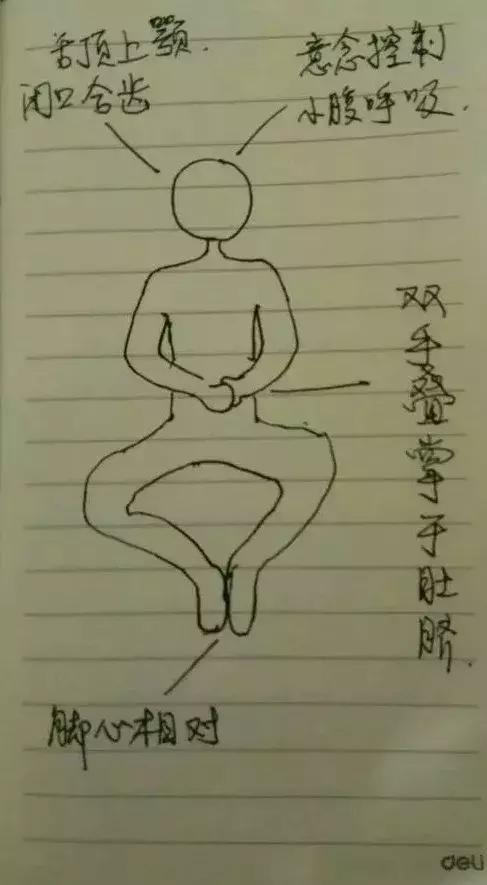 舌顶上颚.
闭口合齿
意念控制
小腹呼吸.
双手叠掌于肚脐.
脚心相对
deli